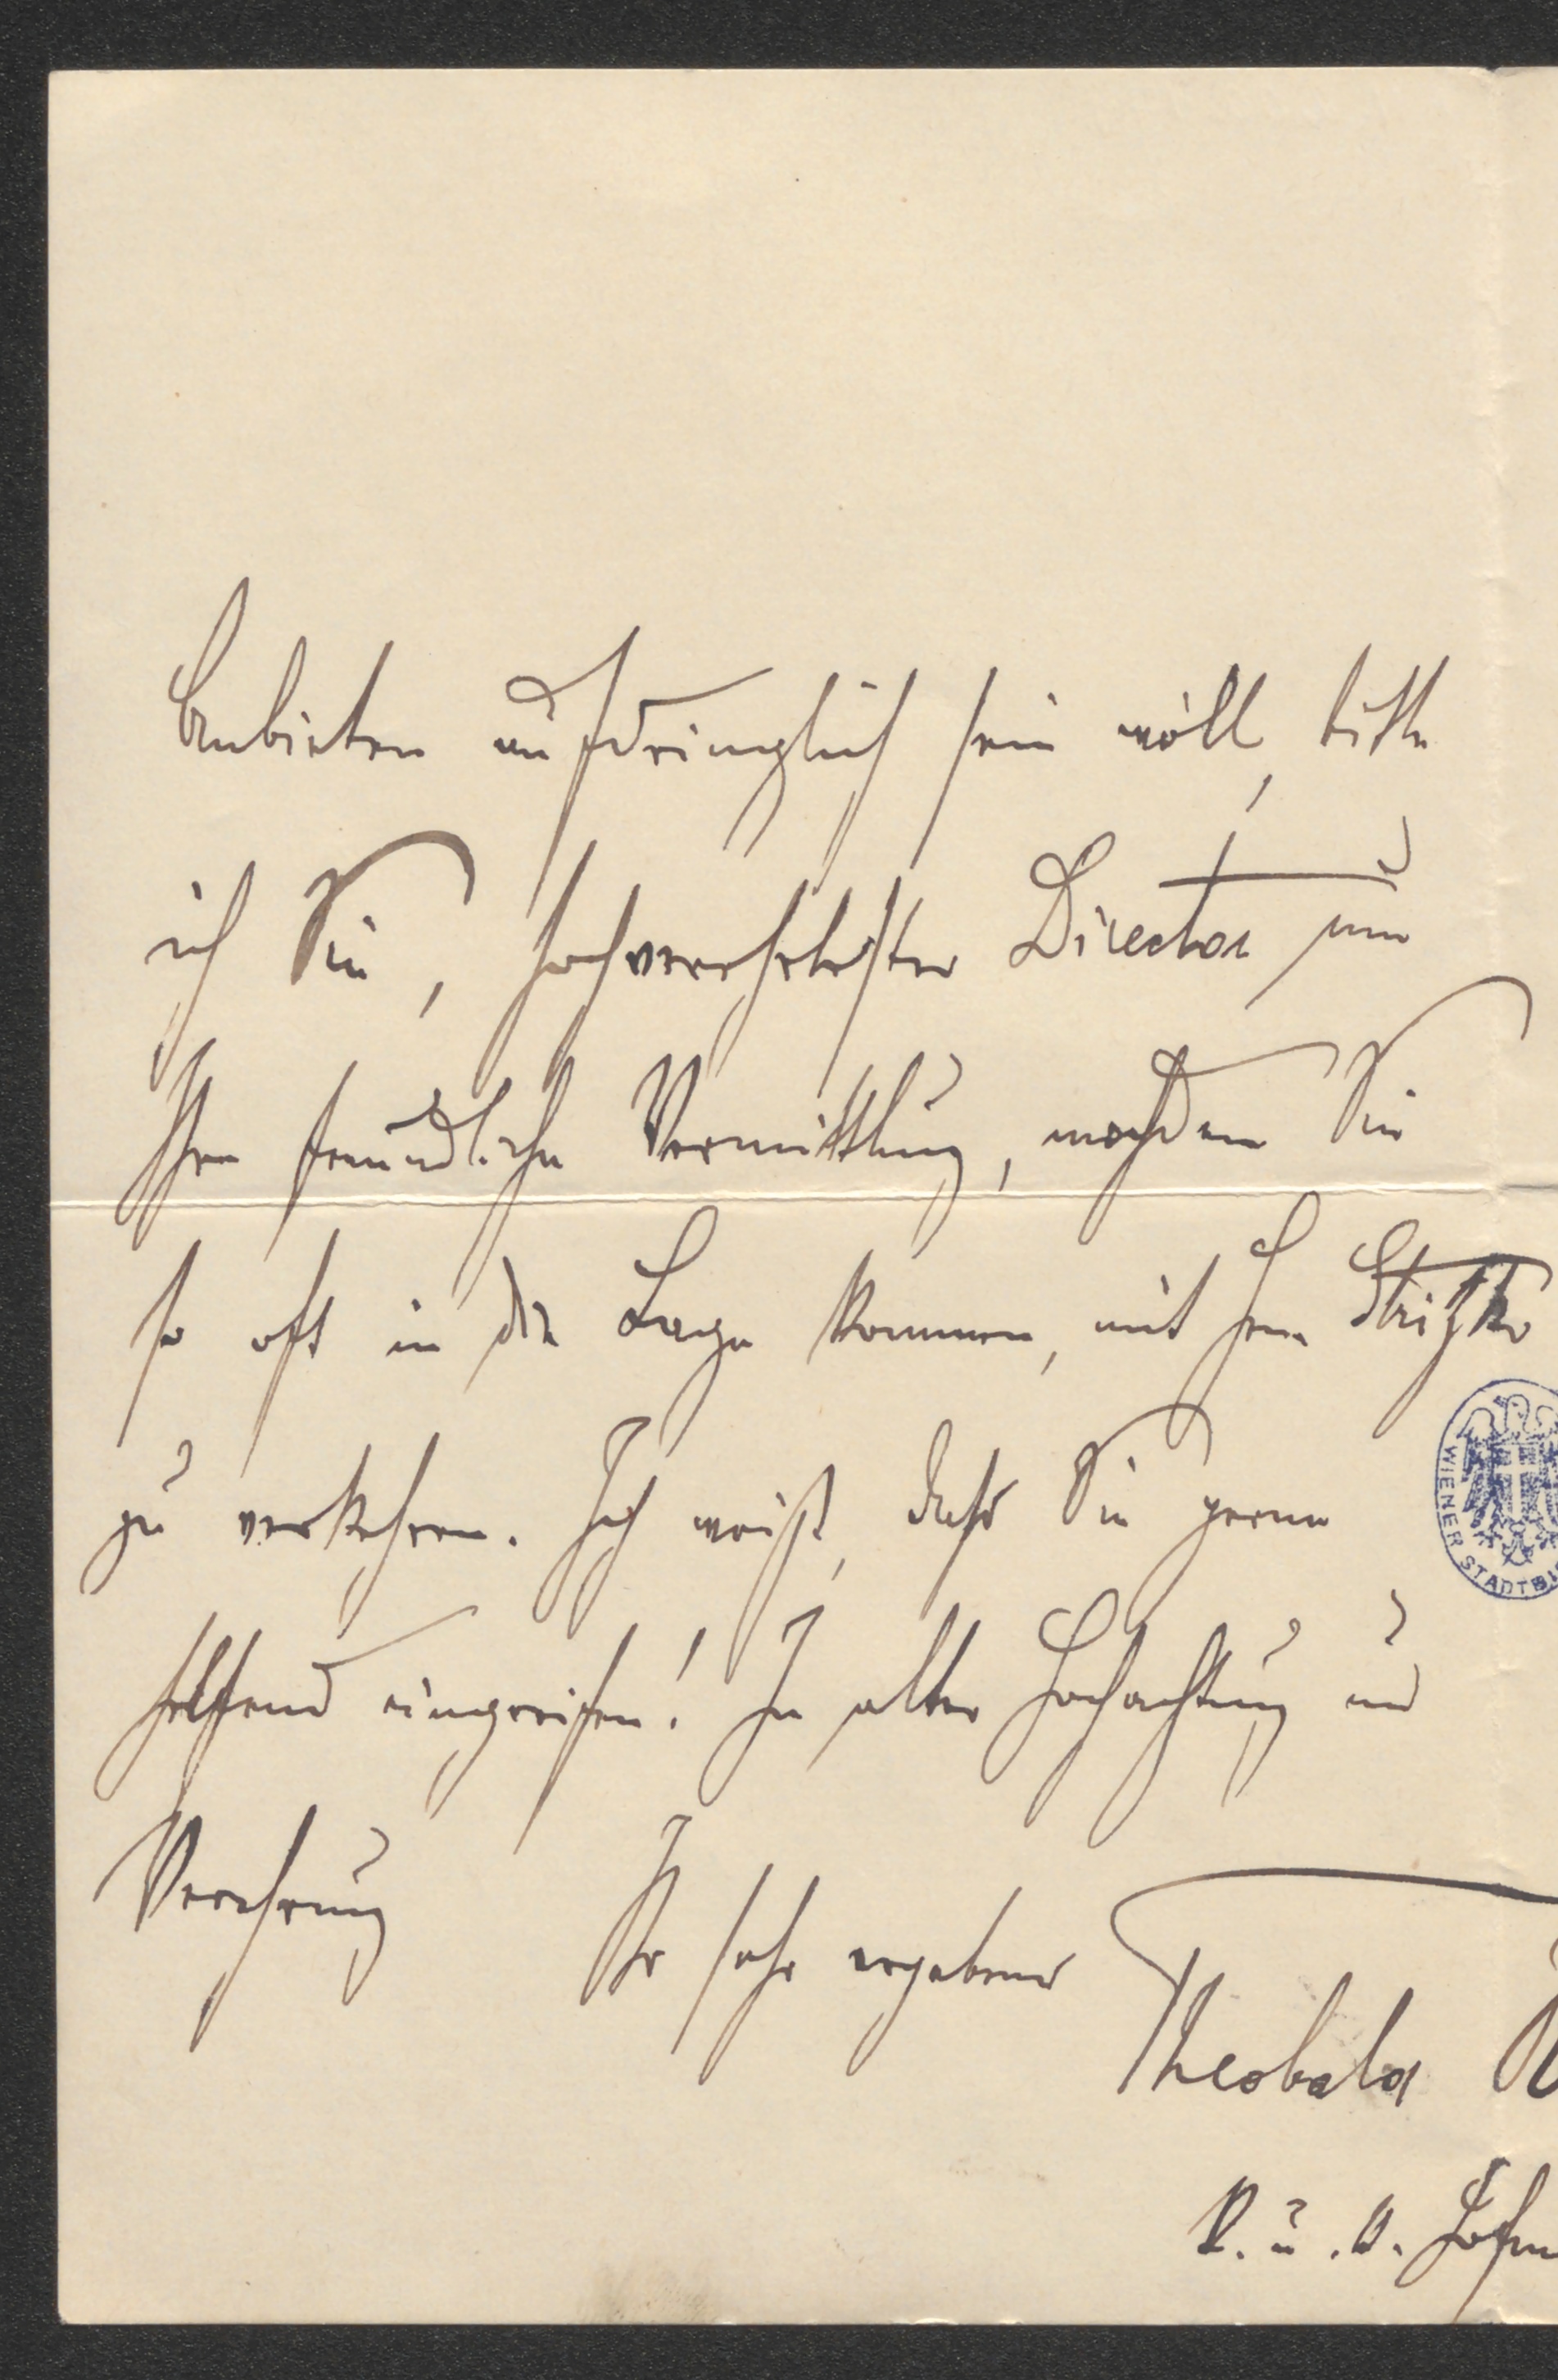 Anbieten aufdringlich sein wöll, bitte
ich Sie, hochverehrtester Director um
Ihre freundliche Vermittlung, nachdem Sie
so oft in die Lage kommen, mit Hrn Stritzko
zu verkehren. Ich weiß, dass Sie gerne
helfend eingreifen! In alter Hochachtung und
Verehrung Ihr sehr ergebener
Theobald
K. u. K. Hofm
WIENER STADTBI